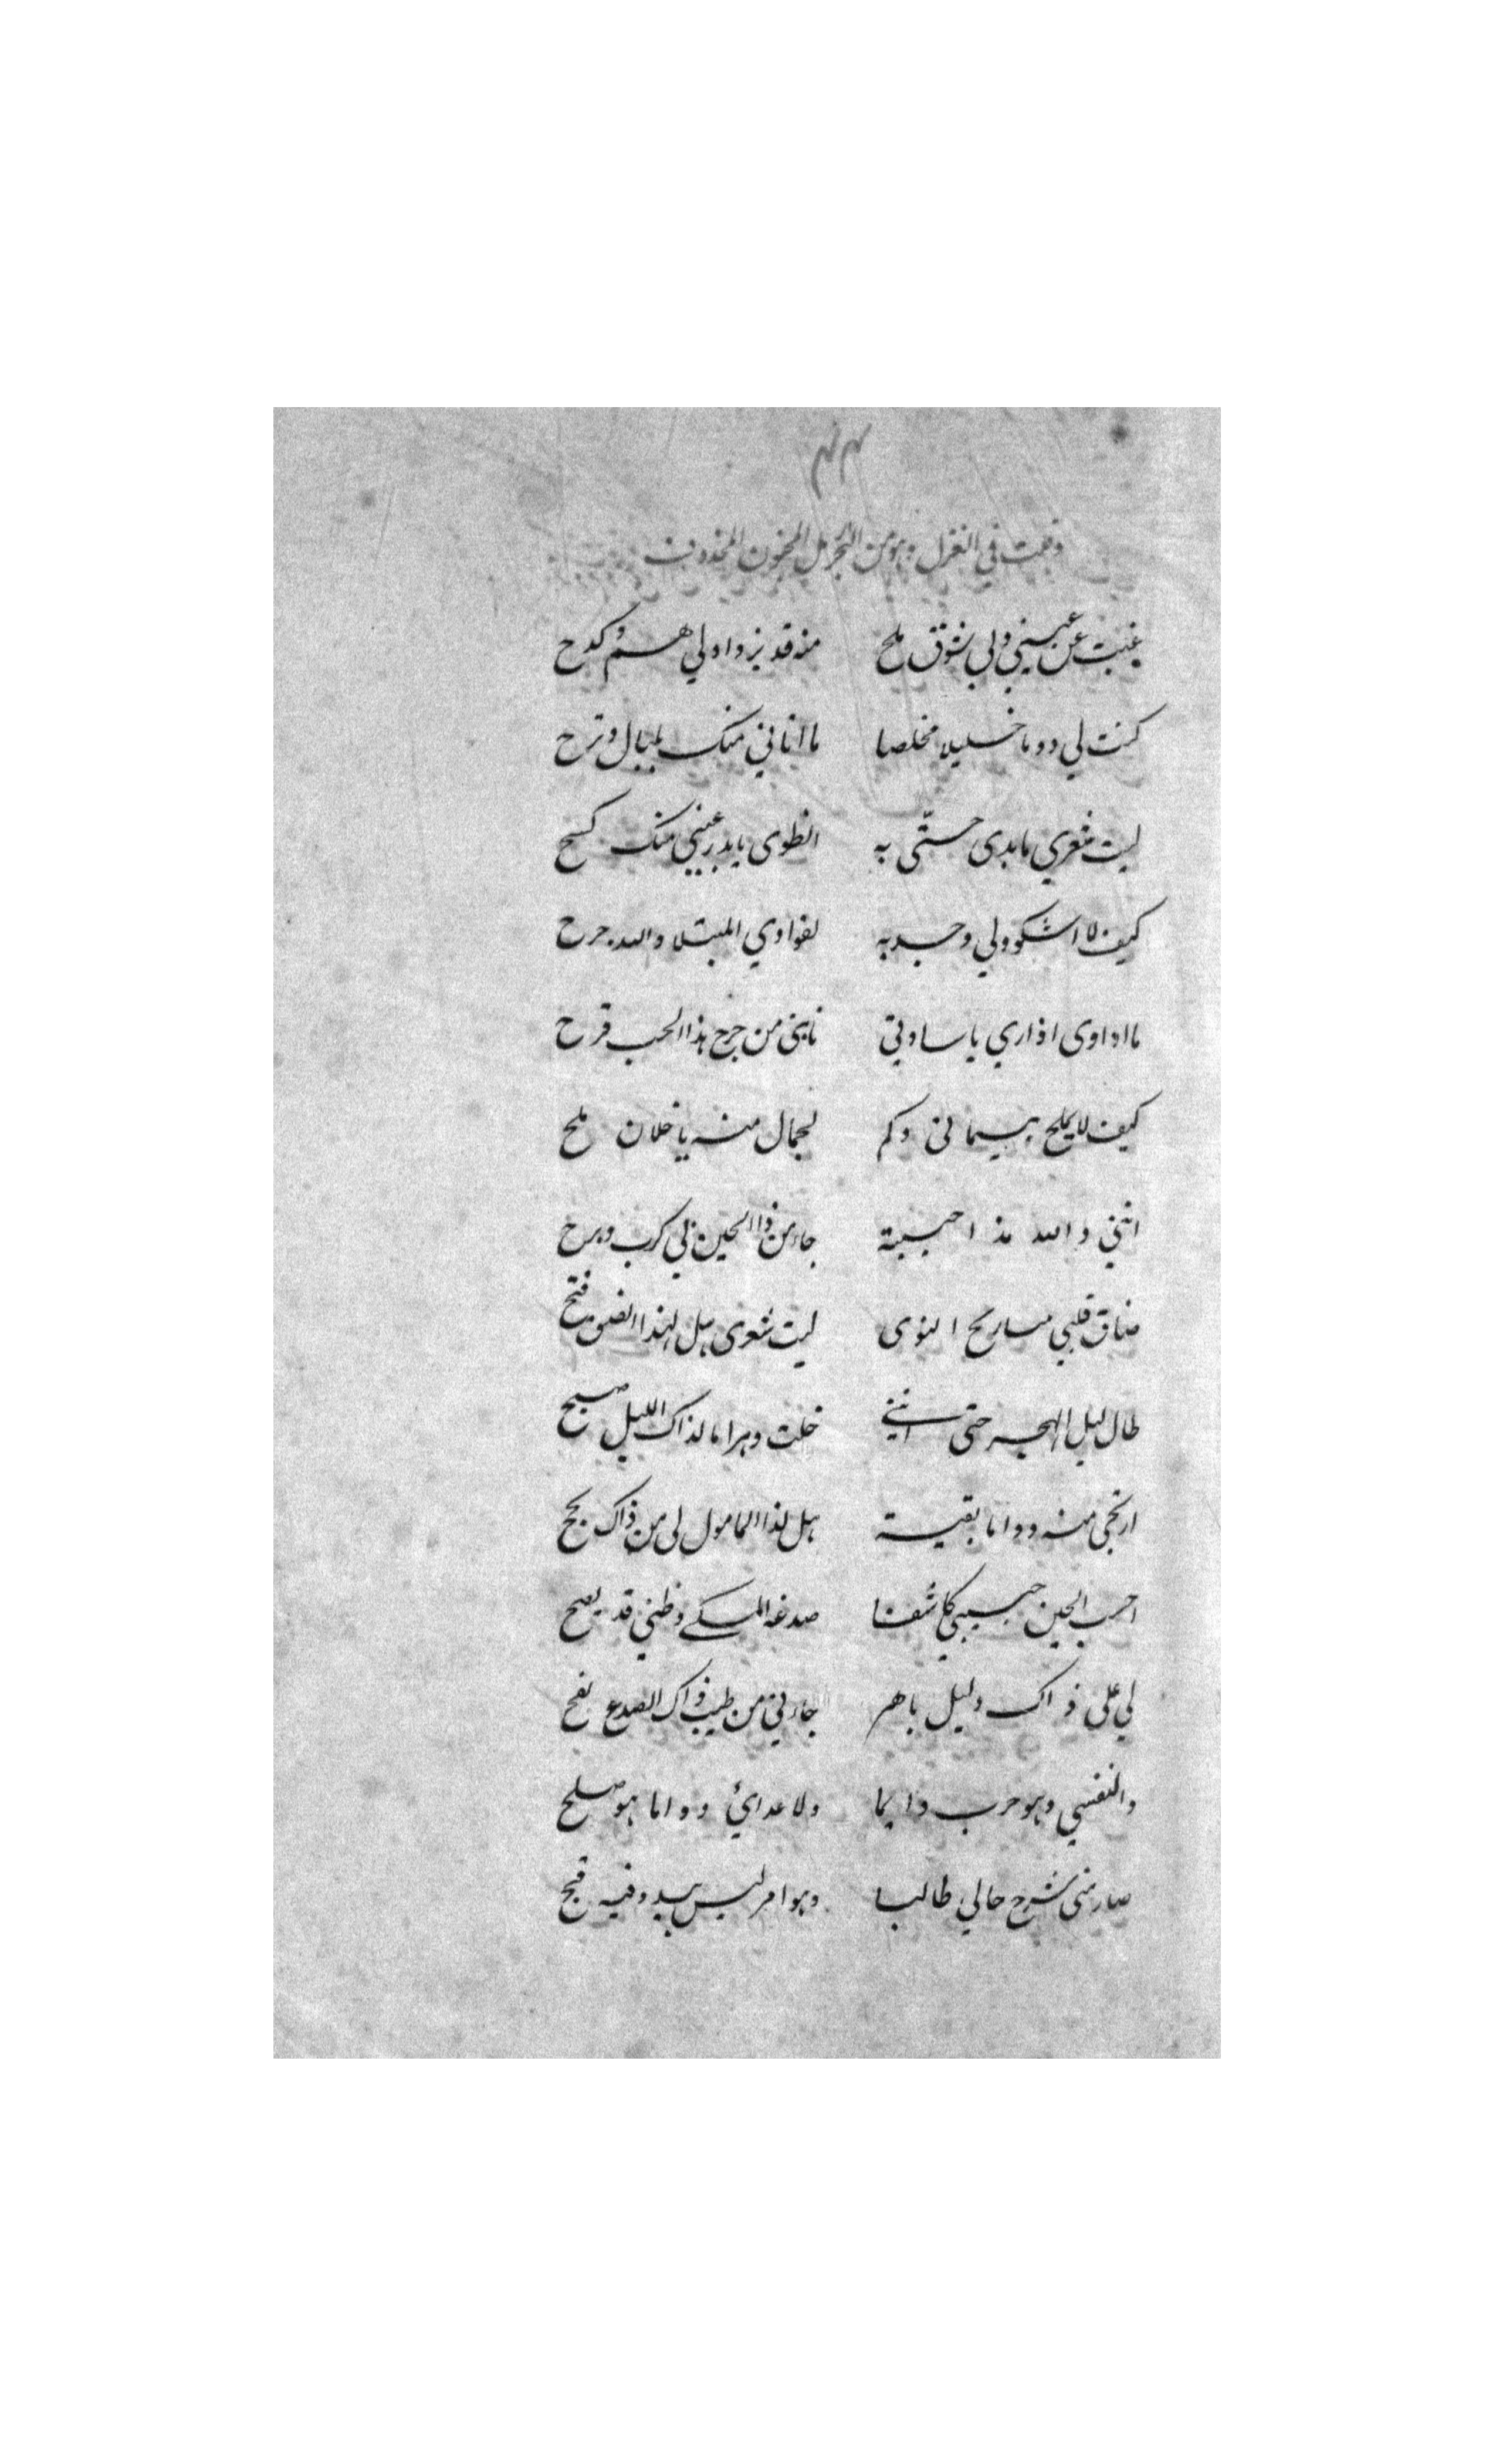 ۴۴
وقلت في الغزل وهو من البحر الرمل المخبون المحذوف
غبت عن عيني ولي شوق ملح منه قد يزداد لي هم وكدح
كنت لي دوما خليلا مخلصا ما اتاني منك بلبال وترح
ليت شعري ما بدى حتّى به انطوى يا بدر عيني منك كسح
كيف لا اشكو ولي وجد به لفوادي المبتلا والله جرح
ما اداوى اذ اري يا سادتي نابني من جرح هذا الحب قرح
كيف لا يملح بيا وكم لجمال منه يا خلان ملح
انني والله مذ احببته جاء من ذا الحين لي كرب وبرح
ضاق قلبي النوى ليت شعرى هل لهذا الضيق فتح
طال ليل الهجر حتى انني خلت دهرا ما لذاك الليل صبح
ارتجى منه ودادا بقية هل لذا المامول لي من ذاك نجح
احسب الحين حبيبي كاشفا صدغه المسكے وظني قد يصح
لي على ذاك دليل باهر جاءني من طيب ذاك الصدع نفح
والنفسي وهو حرب دايما ولاعدائي ودادا هو صلح
صار منى شرح حالي طالبا وهو امر ليس يبدو فيه قبح